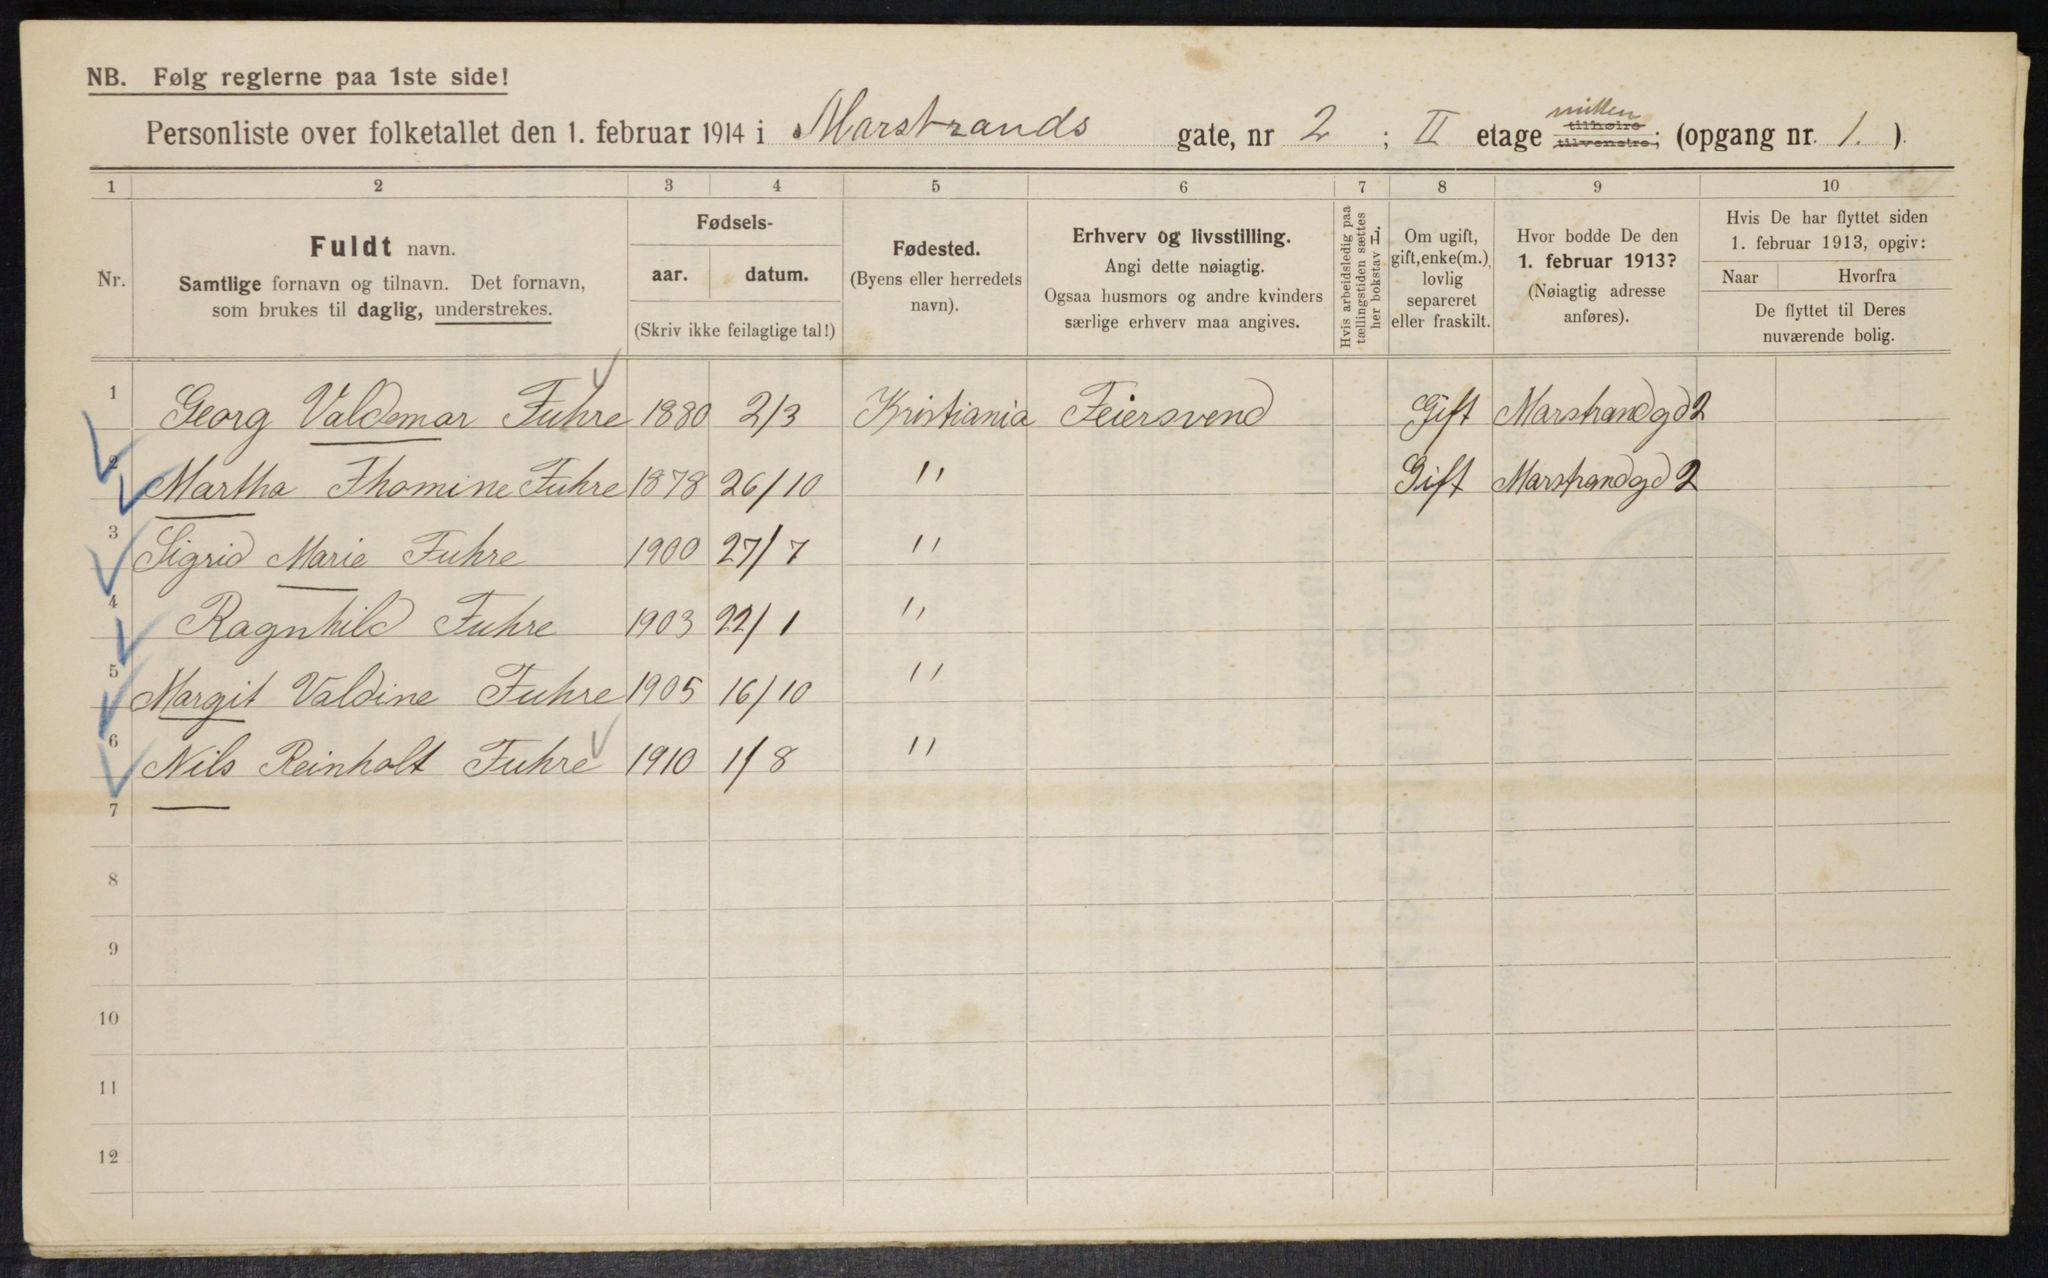 NB. Følg reglerne paa 1ste side!
mitten
Personliste over folketallet den 1. februar 1914 i Marstrands gate, nr 2 ; II etage tilhøire tilvenstre; (opgang nr. 1. ).
1 2 3 4 5 6 7 8 9 10
Nr.
Fuldt navn.
Samtlige fornavn og tilnavn. Det fornavn,
som brukes til daglig, understrekes.
Fødsels-
aar. datum.
(Skriv ikke feilagtige tal!)
Fødested.
(Byens eller herredets
navn).
Erhverv og livsstilling.
Angi dette nøiagtig.
Ogsaa husmors og andre kvinders
særlige erhverv maa angives.
Hvis arbeidsledig paa
tællingstiden sættes
her bokstav L.
Om ugift,
gift, enke(m.),
lovlig
separeret
eller fraskilt.
Hvor bodde De den
1. februar 1913?
(Nøiagtig adresse
anføres).
Hvis De har flyttet siden
1. februar 1913, opgiv:
Naar Hvorfra
De flyttet til Deres
nuværende bolig.
1 Georg Valdemar Fuhre 1880 2/3 Kristiania Feiersvend Gift Marstrandgd 2
2 Martha Thomine Fuhre 1878 26/10 " Gift Marstrandgd 2
3 Sigrid Marie Fuhre 1900 27/7 "
4 Ragnhild Fuhre 1903 22/1 "
5 Margit Valdine Fuhre 1905 16/10 "
6 Nils Reinholt Fuhre 1910 1/8 "
7
8
9
10
11
12